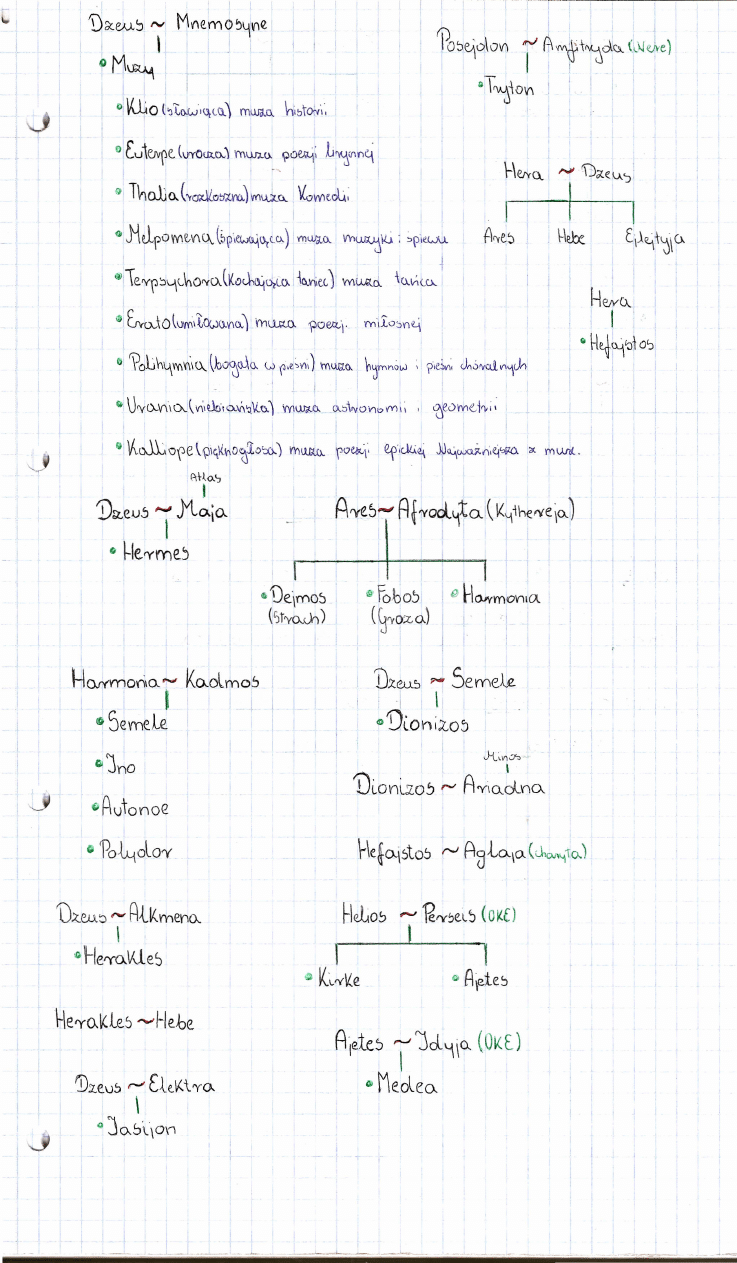 Dzeus ~ Mnemosyne
Muzy
Klio (sławiąca) muza historii
Euterpe (urocza) muza poezji lirycznej
Thalia (rozkoszna) muza Komedii
Melpomena (śpiewająca) muza muzyki i śpiewu
Terpsychora (Kochająca taniec) muza tańca
Erato (umiłowana) muza poezji miłosnej
Polihymnia (bogata w pieśni) muza hymnów i pieśni chóralnych
Urania (niebiańska) muza astronomii i geometrii
Kalliope (pięknogłosa) muza poezji epickiej Najważniejsza z muz.
Posejdon ~ Amfitryda (Nere)
Tryton
Hera ~ Dzeus
Ares Hebe Ejlejtyja
Hera
Hefajstos
Atlas
Dzeus ~ Maja
Hermes
Ares ~ Afrodyta (Kythereja)
Dejmos Fobos Harmonia
(Strach) (Groza)
Harmonia ~ Kadmos
Semele
Ino
Autonoe
Polydor
Dzeus ~ Semele
Dionizos
Minos
Dionizos ~ Ariadna
Hefajstos ~ Aglaja (charyta)
Dzeus ~ Alkmena
Herakles
Helios ~ Perseis (OKE)
Kirke Ajetes
Herakles ~ Hebe
Ajetes ~ Idyja (OKE)
Medea
Dzeus ~ Elektra
Jasijon